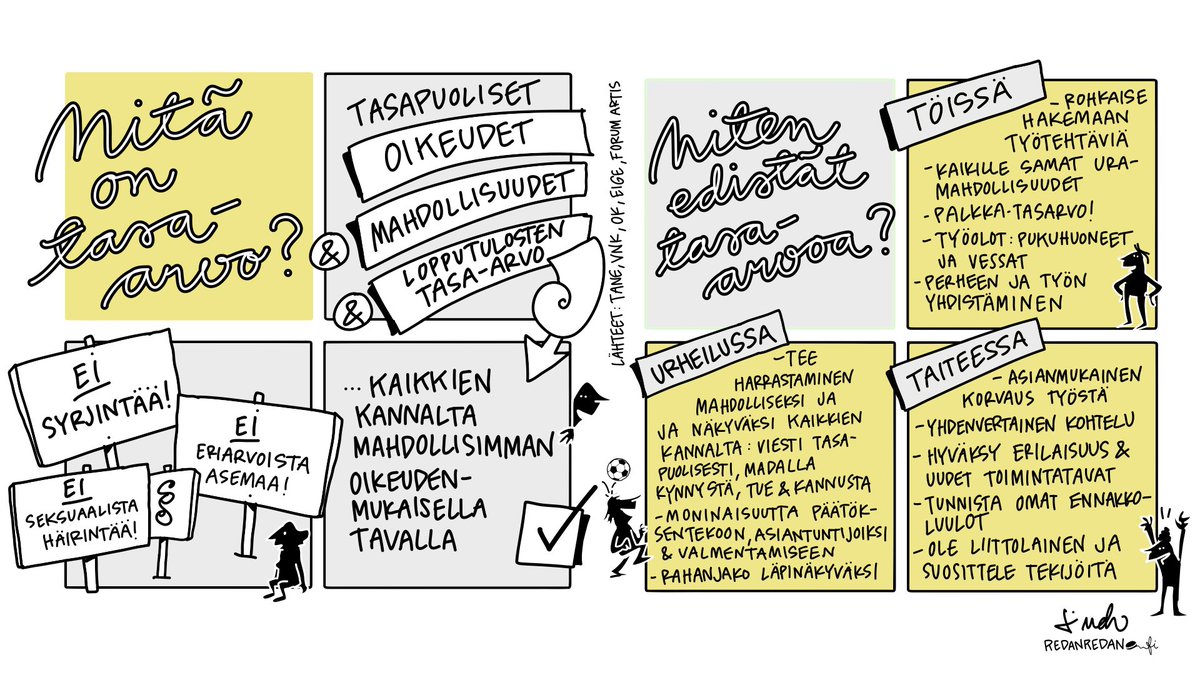 Mitä
on
tasa-
arvo?
TASAPUOLISET
OIKEUDET
& MAHDOLLISUUDET
& LOPPUTULOSTEN
TASA-ARVO
EI
SYRJINTÄÄ!
EI
ERIARVOISTA
ASEMAA!
EI
SEKSUAALISTA
HÄIRINTÄÄ!
§
... KAIKKIEN
KANNALTA
MAHDOLLISIMMAN
OIKEUDEN-
MUKAISELLA
TAVALLA
LÄHTEET: TANE, VNK, OF, EIGE, FORUM ARTIS
Miten
edistät
tasa-
arvoa?
TÖISSÄ
- ROHKAISE
HAKEMAAN
TYÖTEHTÄVIÄ
- KAIKILLE SAMAT URA-
MAHDOLLISUUDET
- PALKKA-TASARVO!
- TYÖOLOT: PUKUHUONEET
JA VESSAT
- PERHEEN JA TYÖN
YHDISTÄMINEN
URHEILUSSA
- TEE
HARRASTAMINEN
MAHDOLLISEKSI JA
JA NÄKYVÄKSI KAIKKIEN
KANNALTA: VIESTI TASA-
PUOLISESTI, MADALLA
KYNNYSTÄ, TUE & KANNUSTA
- MONINAISUUTTA PÄÄTÖK-
SENTEKOON, ASIANTUNTIJOIKSI
& VALMENTAMISEEN
- RAHANJAKO LÄPINÄKYVÄKSI
TAITEESSA
- ASIANMUKAINEN
KORVAUS TYÖSTÄ
- YHDENVERTAINEN KOHTELU
- HYVÄKSY ERILAISUUS &
UUDET TOIMINTATAVAT
- TUNNISTA OMAT ENNAKKO-
LUULOT
- OLE LIITTOLAINEN JA
SUOSITTELE TEKIJÖITÄ
REDANREDAN.fi